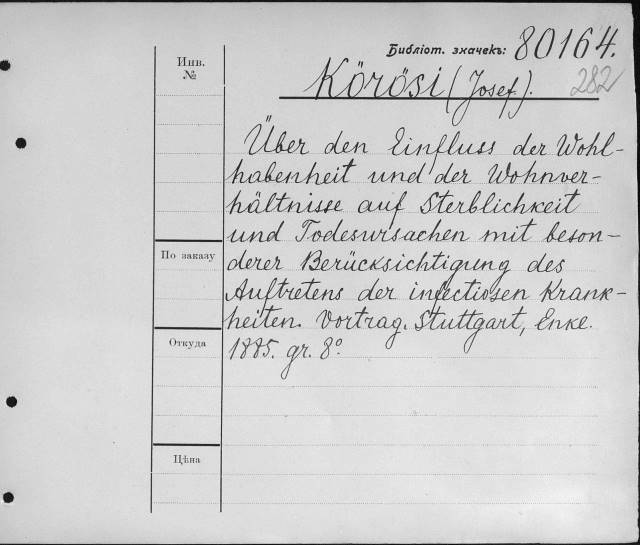 Библіот. значекъ: 80164.
Инв.
№
Körösi (Josef). 282
Über den Einfluss der Wohl-
habenheit und der Wohnver-
hältnisse auf Sterblichkeit
und Todesursachen mit beson-
По заказу
derer Berücksichtigung des
Auftretens der infectiosen Krank-
heiten. Vortrag. Stuttgart, Enke.
Откуда
1885. gr. 8°.
Цѣна